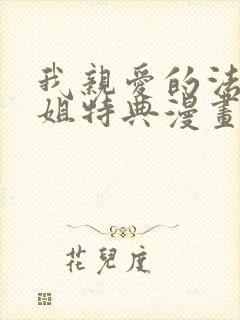 我親愛的法
姐特典漫畫
花兒度